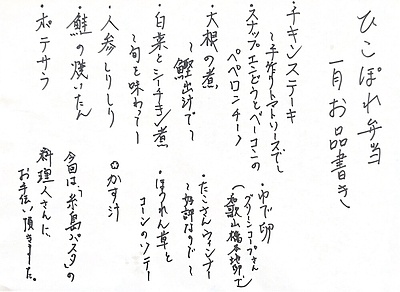 ひこぽれ弁当
一月お品書き
・チキンステーキ
〜手作りトマトソースで〜
・スナップエンドウとベーコンの
ペペロンチーノ
・大根の煮
〜鰹出汁で〜
・白菜とシーチキン煮
〜旬を味わって〜
・人参しりしり
・鮭の焼いたん
・ポテサラ
・ゆで卵
(グリーンコープさん
・たこさんウィンナー
〜好評なので〜
・ほうれん草と
コーンのソテー
✿かす汁
今回は、「糸島パスタ」の
料理人さんに、
お手伝い頂きました。